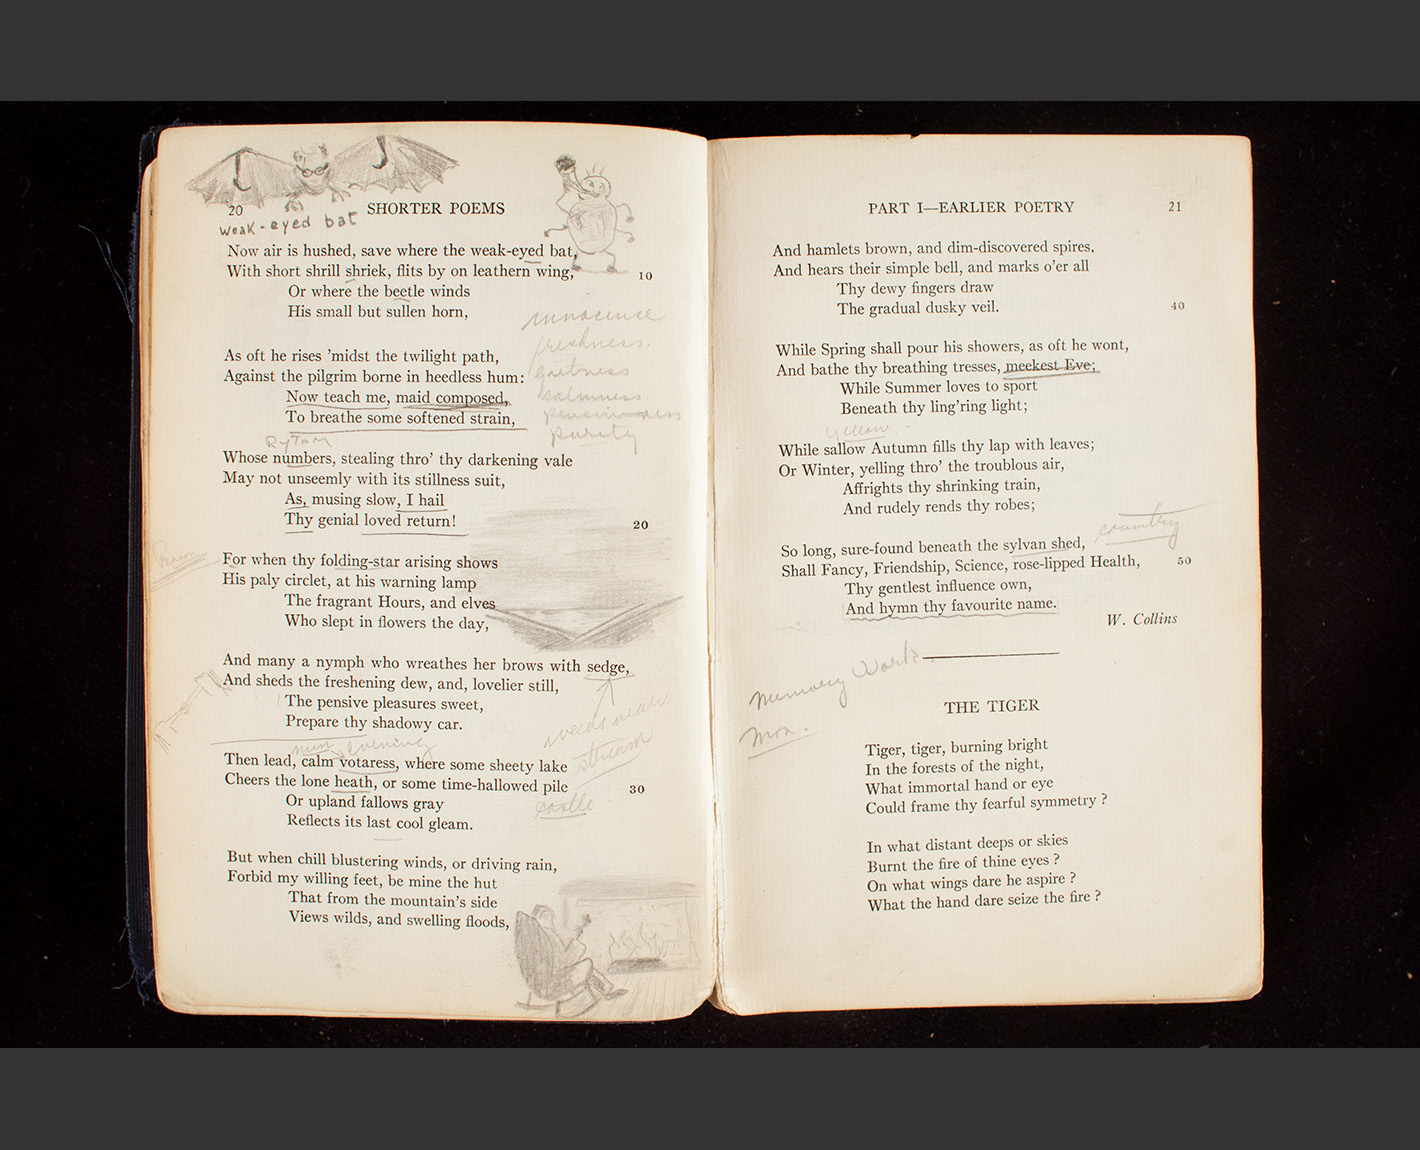 20
SHORTER POEMS
weak-eyed bat
Now air is hushed, save where the weak-eyed bat,
With short shrill shriek, flits by on leathern wing,
10
Or where the beetle winds
His small but sullen horn,
innocence
freshness.
As oft he rises 'midst the twilight path,
Against the pilgrim borne in heedless hum:
quietness
Now teach me, maid composed,
calmness
To breathe some softened strain,
pensiveness
purity
Rytam
Whose numbers, stealing thro' thy darkening vale
May not unseemly with its stillness suit,
As, musing slow, I hail
Thy genial loved return!
20
For when thy folding-star arising shows
His paly circlet, at his warning lamp
The fragrant Hours, and elves
Who slept in flowers the day,
And many a nymph who wreathes her brows with sedge,
And sheds the freshening dew, and, lovelier still,
The pensive pleasures sweet,
Prepare thy shadowy car.
weeds near
stream
nun evening
Then lead, calm votaress, where some sheety lake
Cheers the lone heath, or some time-hallowed pile
30
Or upland fallows gray
Reflects its last cool gleam.
But when chill blustering winds, or driving rain,
Forbid my willing feet, be mine the hut
That from the mountain's side
Views wilds, and swelling floods,
PART I—EARLIER POETRY
21
And hamlets brown, and dim-discovered spires,
And hears their simple bell, and marks o'er all
Thy dewy fingers draw
The gradual dusky veil.
40
While Spring shall pour his showers, as oft he wont,
And bathe thy breathing tresses, meekest Eve;
While Summer loves to sport
Beneath thy ling'ring light;
yellow
While sallow Autumn fills thy lap with leaves;
Or Winter, yelling thro' the troublous air,
Affrights thy shrinking train,
And rudely rends thy robes;
country
So long, sure-found beneath the sylvan shed,
Shall Fancy, Friendship, Science, rose-lipped Health,
50
Thy gentlest influence own,
And hymn thy favourite name.
W. Collins
Memory Work
Mon.
THE TIGER
Tiger, tiger, burning bright
In the forests of the night,
What immortal hand or eye
Could frame thy fearful symmetry ?
In what distant deeps or skies
Burnt the fire of thine eyes ?
On what wings dare he aspire ?
What the hand dare seize the fire ?